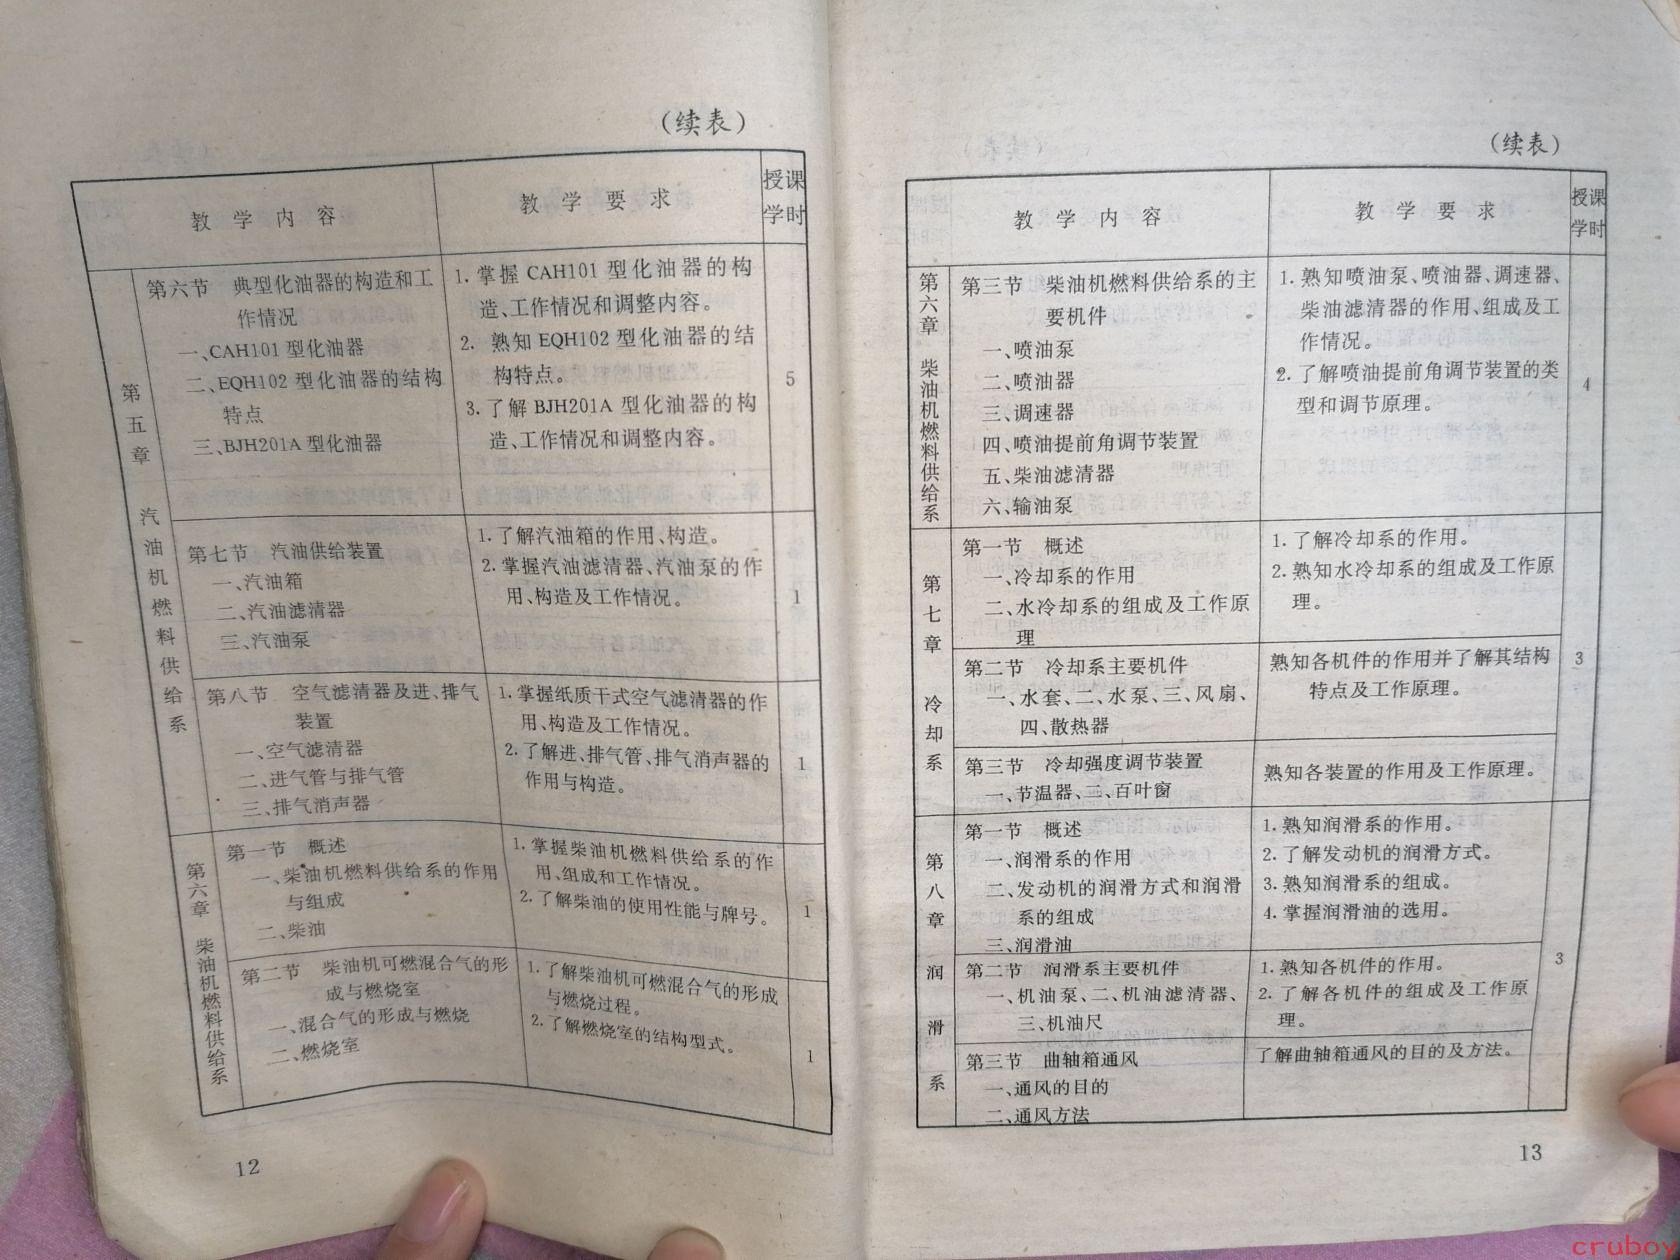 (续表)
教学内容 教学要求 授课
学时
第五章 汽油机燃料供给系
第六节 典型化油器的构造和工
作情况
一、CAH101型化油器
二、EQH102型化油器的结构
特点
三、BJH201A型化油器
1.掌握CAH101型化油器的构
造、工作情况和调整内容。
2.熟知EQH102型化油器的结
构特点。
3.了解BJH201A型化油器的构
造、工作情况和调整内容。
5
第七节 汽油供给装置
一、汽油箱
二、汽油滤清器
三、汽油泵
1.了解汽油箱的作用、构造。
2.掌握汽油滤清器、汽油泵的作
用、构造及工作情况。
1
第八节 空气滤清器及进、排气
装置
一、空气滤清器
二、进气管与排气管
三、排气消声器
1.掌握纸质干式空气滤清器的作
用、构造及工作情况。
2.了解进、排气管、排气消声器的
作用与构造。
1
第六章 柴油机燃料供给系
第一节 概述
一、柴油机燃料供给系的作用
与组成
二、柴油
1.掌握柴油机燃料供给系的作
用、组成和工作情况。
2.了解柴油的使用性能与牌号。
1
第二节 柴油机可燃混合气的形
成与燃烧室
一、混合气的形成与燃烧
二、燃烧室
1.了解柴油机可燃混合气的形成
与燃烧过程。
2.了解燃烧室的结构型式。
1
12
(续表)
教学内容 教学要求 授课
学时
第六章 柴油机燃料供给系
第三节 柴油机燃料供给系的主
要机件
一、喷油泵
二、喷油器
三、调速器
四、喷油提前角调节装置
五、柴油滤清器
六、输油泵
1.熟知喷油泵、喷油器、调速器、
柴油滤清器的作用、组成及工
作情况。
2.了解喷油提前角调节装置的类
型和调节原理。
4
第七章 冷却系
第一节 概述
一、冷却系的作用
二、水冷却系的组成及工作原
理
1.了解冷却系的作用。
2.熟知水冷却系的组成及工作原
理。
第二节 冷却系主要机件
一、水套、二、水泵、三、风扇、
四、散热器
熟知各机件的作用并了解其结构
特点及工作原理。
3
第三节 冷却强度调节装置
一、节温器、二、百叶窗
熟知各装置的作用及工作原理。
第八章 润滑系
第一节 概述
一、润滑系的作用
二、发动机的润滑方式和润滑
系的组成
三、润滑油
1.熟知润滑系的作用。
2.了解发动机的润滑方式。
3.熟知润滑系的组成。
4.掌握润滑油的选用。
第二节 润滑系主要机件
一、机油泵、二、机油滤清器、
三、机油尺
1.熟知各机件的作用。
2.了解各机件的组成及工作原
理。
3
第三节 曲轴箱通风
一、通风的目的
二、通风方法
了解曲轴箱通风的目的及方法。
13
cruboy